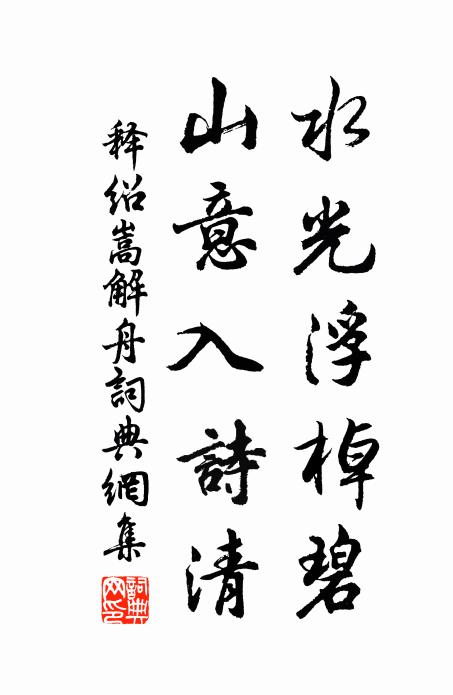 水光浮棹碧
山意入詩清
释绍嵩解舟詞典網集
詞典网印